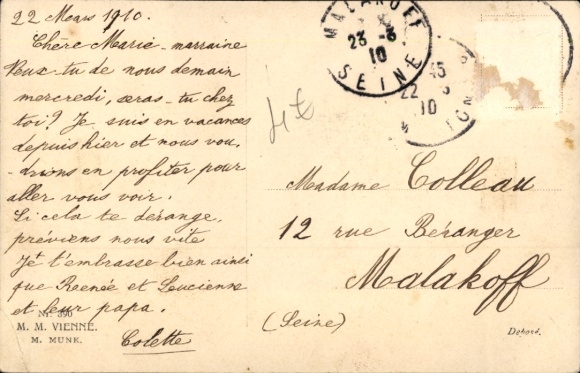 22 Mars 1910.
Chère Marie-marraine
Veux-tu de nous demain
mercredi, seras-tu chez
toi? Je suis en vacances
depuis hier et nous vou-
drions en profiter pour
aller vous voir.
Si cela te dérange,
préviens nous vite
Je t'embrasse bien ainsi
que Renée et Lucienne
et leur papa.
Colette
Nr. 390
M. M. VIENNE.
M. MUNK.
MALAKOFF
23-3
10
SEINE
15
22
10
4€
Madame Colleau
12 rue Béranger
Malakoff
(Seine)
Déposé.